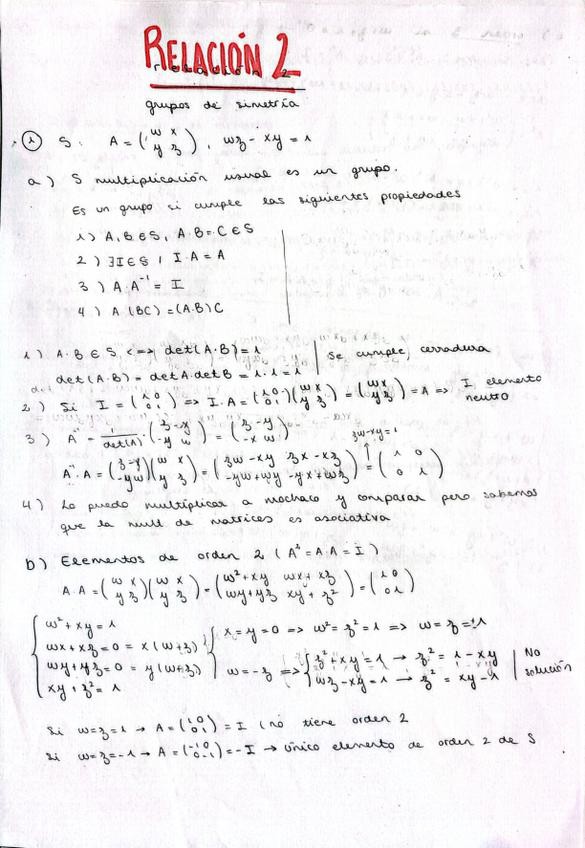 RELACIÓN 2
relación 2
grupos de simetría
1) S: A = (w x / y z), wz - xy = 1
a) S multiplicación usual es un grupo.
Es un grupo si cumple las siguientes propiedades
1) A, B ∈ S, A·B = C ∈ S
2) ∃ I ∈ S / I·A = A
3) A·A⁻¹ = I
4) A(BC) = (A·B)C
1) A·B ∈ S <=> det(A·B) = 1 | se cumple, cerradura
det(A·B) = det A · det B = 1·1 = 1
2) Si I = (1 0 / 0 1) => I·A = (1 0 / 0 1)(w x / y z) = (w x / y z) = A => I elemento neutro
3) A⁻¹ = 1/det(A) · (z -x / -y w) = (z -y / -x w)
zw-xy=1
A⁻¹·A = (z -x / -y w)(w x / y z) = (zw-xy zx-xz / -yw+wy -yx+wz) = (1 0 / 0 1)
4) Lo puedo multiplicar a machaco y comparar pero sabemos
que la mult de matrices es asociativa
b) Elementos de orden 2 (A² = A·A = I)
A·A = (w x / y z)(w x / y z) = (w²+xy wx+xz / wy+yz xy+z²) = (1 0 / 0 1)
{ w² + xy = 1
wx + xz = 0 = x(w+z)
wy + yz = 0 = y(w+z)
xy + z² = 1
{ x = y = 0 => w² = z² = 1 => w = z = ±1
w = -z => { z² + xy = 1 → z² = 1 - xy
wz - xy = 1 → z² = xy - 1 | No solución
Si w = z = 1 → A = (1 0 / 0 1) = I (no tiene orden 2
Si w = z = -1 → A = (-1 0 / 0 -1) = -I → único elemento de orden 2 de S